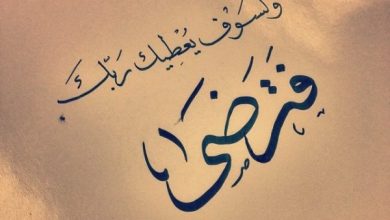 ولسوف يعطيك ربك
فترضى